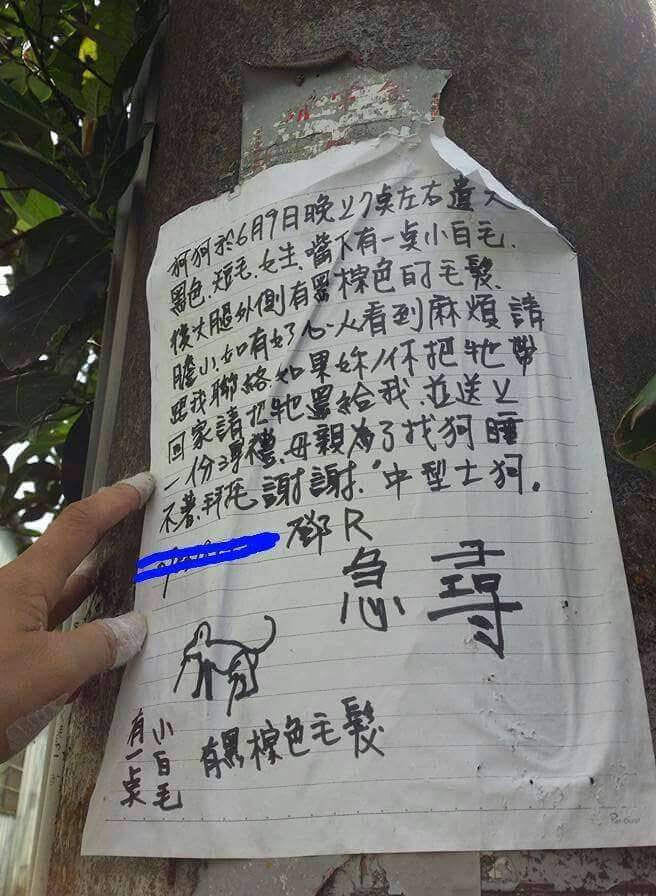 狗狗於6月9日晚上7点左右遺失
黑色.短毛.女生.嘴下有一点小白毛.
後大腿外側有黑棕色的毛髮.
膽小.如有好心人看到麻煩請
跟我聯絡.如果妳/你把牠帶
回家請把牠還給我.並送上
一份薄禮.母親為了找狗睡
不著.拜托謝謝."中型土狗.
鄧R
急尋
有一点
小白毛
有黑棕色毛髮